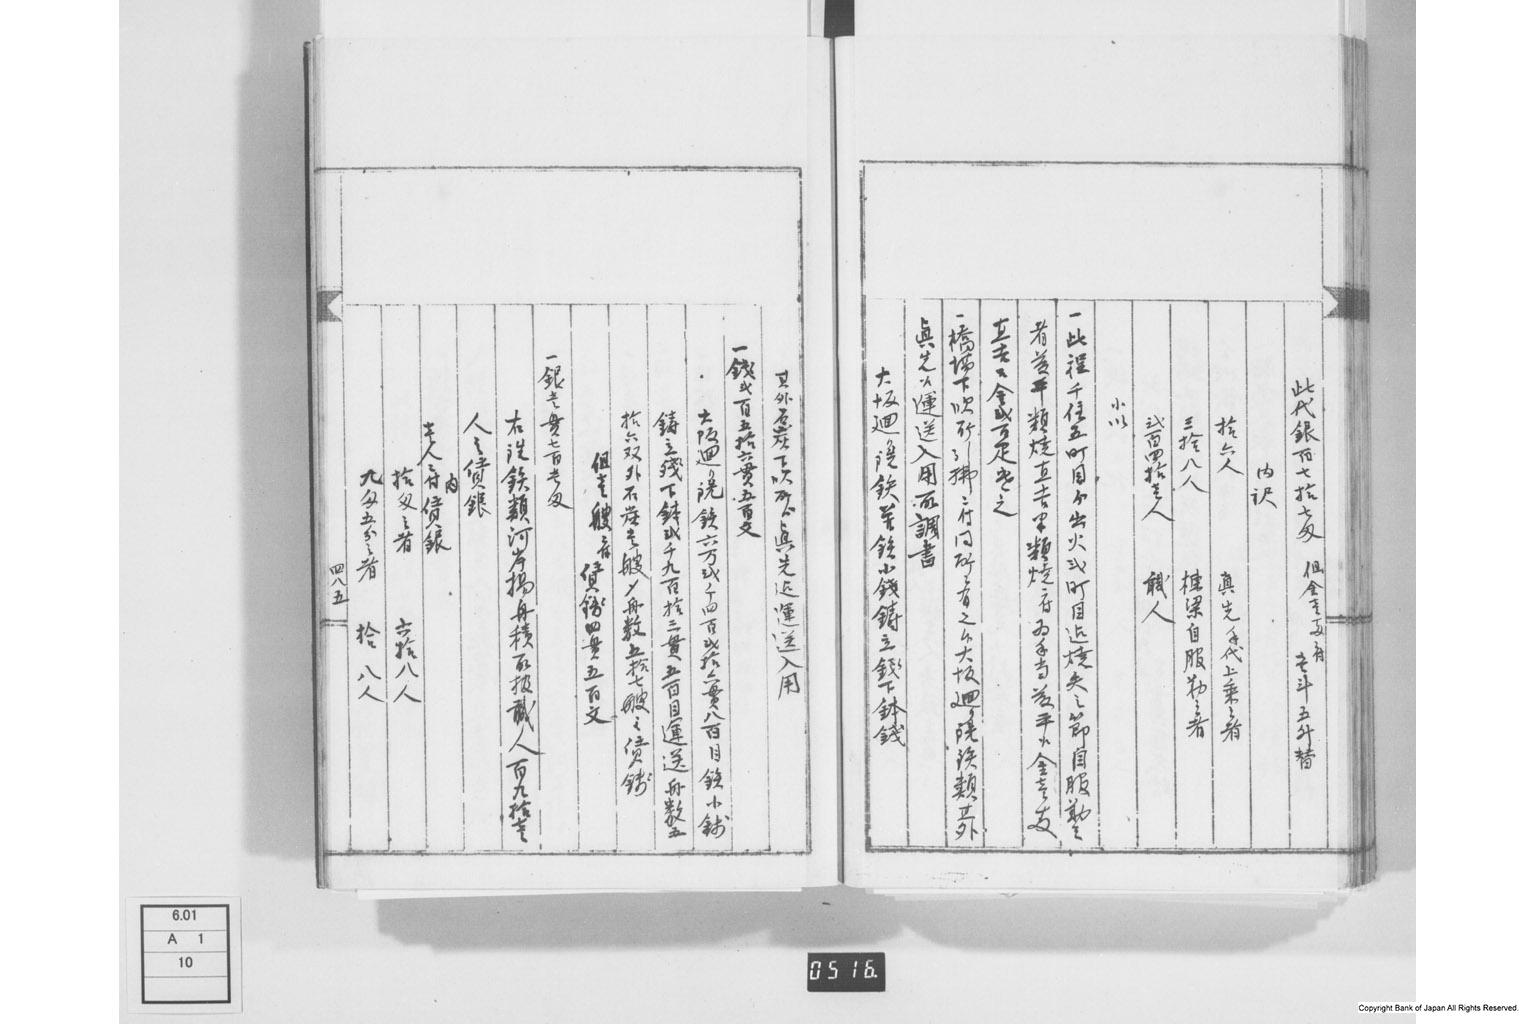 此代銀百七拾七匁 但金壱両ニ付 壱斗五升替
内訳
拾六人 真先手代上乗之者
三拾八人 棟梁自服勤之者
弐百四拾壱人 職人
小以
一此程千住五町目ゟ出火弐町目迄焼失之節自服勤之
者茂平類焼直吉半類焼ニ付為手当茂平江金壱両
直吉江金弐百疋遣之
一橋場下吹所引払ニ付同所ニ有之候大坂廻り洗鉄類其外
真先江運送入用取調書
大坂廻洗鉄并鉄小銭鋳立銭下鉢銭
其外石炭下吹所ゟ真先迄運送入用
一銭弐百五拾六貫五百文
大阪廻り洗鉄六万弐千四百弐拾六貫八百目鉄小銭
鋳立銭下鉢弐千九百拾三貫五百目運送舟数五
拾六双外石炭壱艘〆舟数五拾七艘之賃銭
但壱艘ニ付 賃銭四貫五百文
一銀壱貫七百壱匁
右洗鉄類河岸揚舟積取扱職人百九拾壱
人之賃銀
内
壱人ニ付賃銀
拾匁之者 六拾八人
九匁五分之者 拾八人
四八五
6.01
A 1
10
0516.
Copyright Bank of Japan All Rights Reserved.